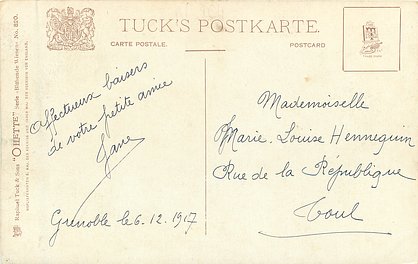 TUCK'S POSTKARTE.
CARTE POSTALE.
POSTCARD
Affectueux baisers
de votre petite amie
Jane
Grenoble le 6.12.1917
Mademoiselle
Marie-Louise Hennequin
Rue de la République
Toul
Raphael Tuck & Sons "OILETTE" Serie No. 690.